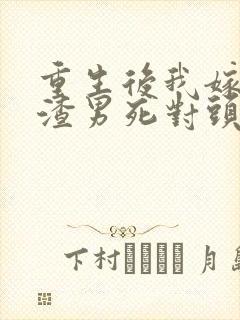 重生後我嫁
渣男死對頭
下村 月島